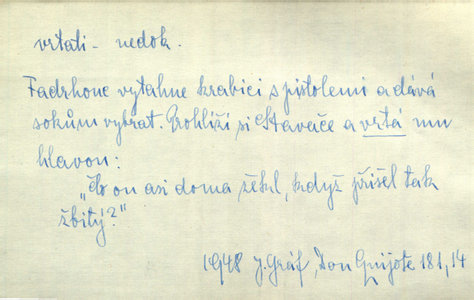 vrtati - nedok.
Fadrhonc vytáhne krabici s pistolemi a dává
sokům vybrat. Prohlíží si Staváče a vrtá mu
hlavou:
„Co on asi doma řekl, když přišel tak
zbitý?"
1948 J. Gráf, Don Quijote 181,14